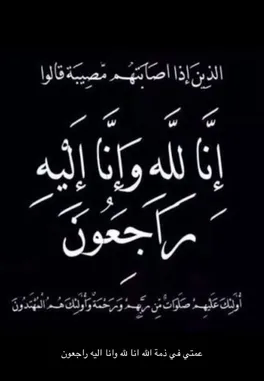 الذِينَ إذَا اصَابَتهُم مُّصِيبَة قالوا
إِنَّا لِلَّهِ وَإِنَّا إِلَيْهِ
رَاجِعُونَ
أُولَئِكَ عَلَيْهِمْ صَلَوَاتٌ مِّن رَّبِّهِمْ وَرَحْمَةٌ وَأُولَئِكَ هُمُ الْمُهْتَدُونَ
عمتي في ذمة الله انا لله وانا اليه راجعون